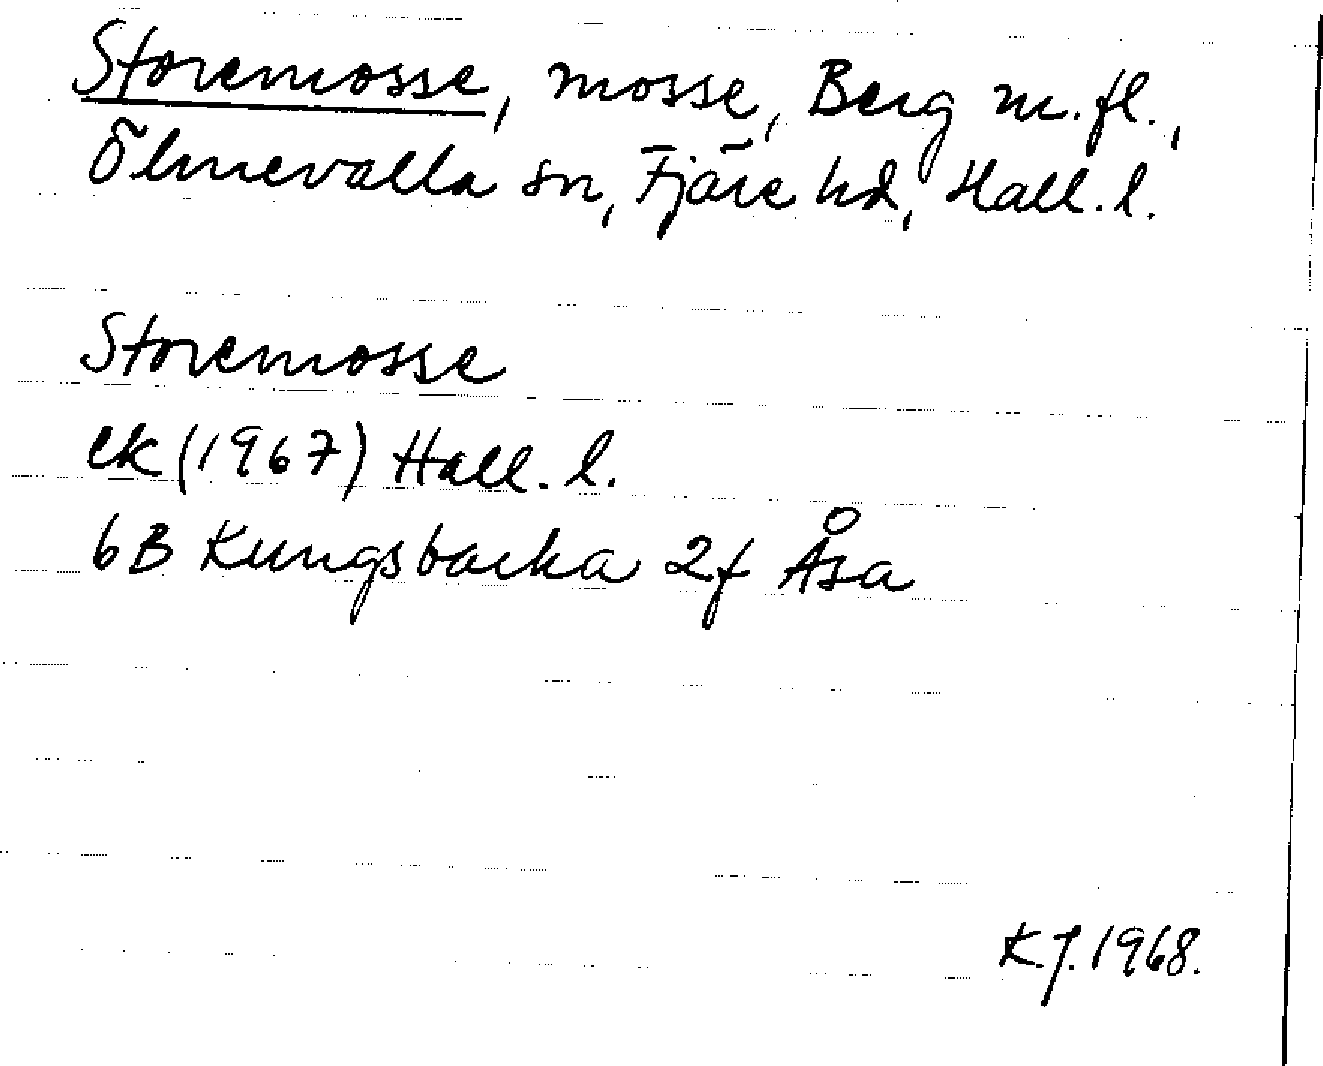 Storemosse, mosse, Berg m.fl.,
Ölmevalla sn, Fjäre hd, Hall. l.
Storemosse
ek (1967) Hall. l.
6B Kungsbacka 2f Åsa
K.J. 1968.